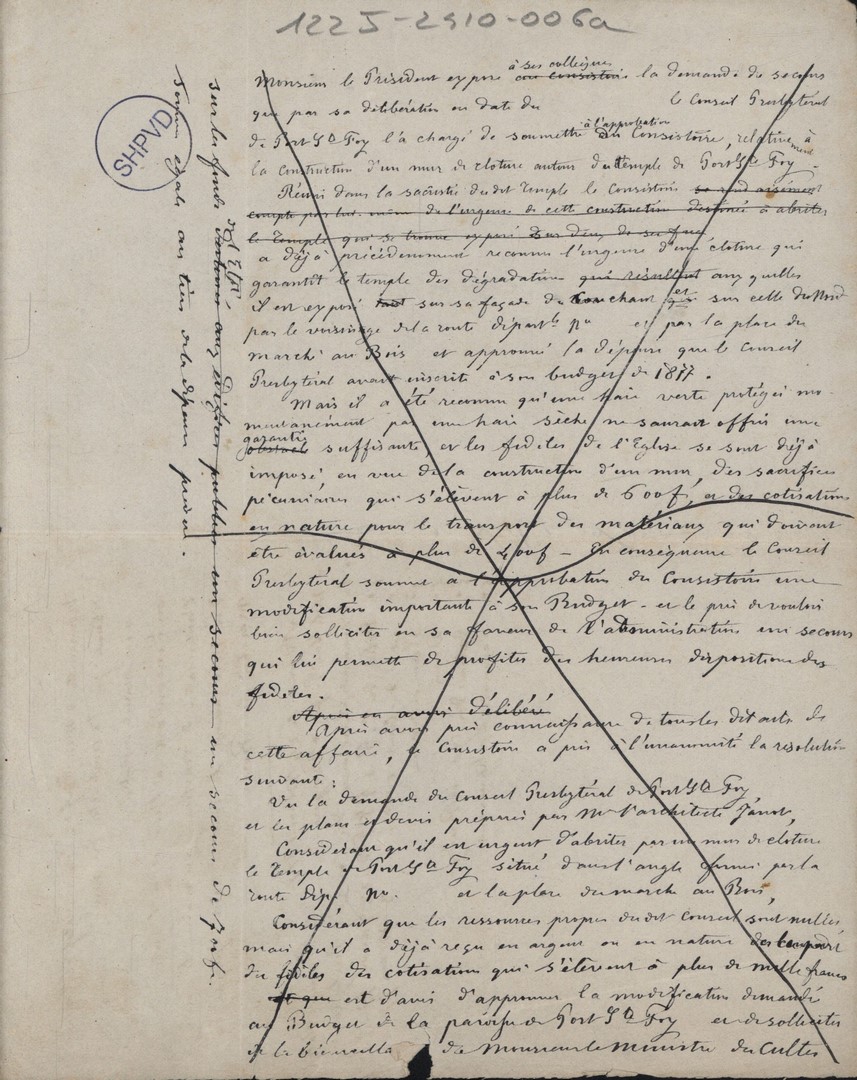 1225-2910-006a
SHPVD
Monsieur le Président expose à ses collègues au consistoire la demande de secours
que par sa délibération en date du le Conseil Presbytéral
de Port Ste Foy l'a chargé de soumettre à l'approbation du Consistoire, relativement à
la construction d'un mur de cloture autour du temple de Port Ste Foy -
Réuni dans la sacristie du dit Temple le Consistoire se rend aisément
compte par lui-même de l'urgence de cette construction destinée à abriter
le Temple qui se trouve exposé sur deux de ses faces
a déjà précédemment reconnu l'urgence d'une cloture qui
garantît le temple des dégradations qui résultent auxquelles
il est exposé tant sur sa façade du couchant et sur celle du Nord
par le voisinage de la route départle no et par la place du
marché au Bois et approuvé la dépense que le Conseil
Presbytéral avait inscrite à son budget de 1877.
Mais il a été reconnu qu'une haie verte protégée mo-
mentanément par une haie sèche ne saurait offrir une
garantie obstacle suffisante, et les fidèles de l'Eglise se sont déjà
imposé, en vue de la construction d'un mur, des sacrifices
pécuniaires qui s'élèvent à plus de 600f, et des cotisations
en nature pour le transport des matériaux qui doivent
être évalués à plus de 400f - En conséquence le Conseil
Presbytéral soumet à l'approbation du Consistoire une
modification importante à son Budget - et le prie de vouloir
bien solliciter en sa faveur de l'administration un secours
qui lui permette de profiter des heureuses dispositions des
fidèles.
Après en avoir délibéré
Après avoir pris connaissance de tous les détails de
cette affaire, le Consistoire a pris à l'unanimité la résolution
suivante :
Vu la demande du Conseil Presbytéral de Port Ste Foy,
et les plans et devis préparés par Mr l'architecte Janot,
Considérant qu'il est urgent d'abriter par un mur de cloture
le Temple de Port Ste Foy situé dans l'angle formé par la
route Dépe no. et la place du marché au Bois,
Considérant que les ressources propres du dit Conseil sont nulles,
mais qu'il a déjà reçu en argent ou en nature de la part
des fidèles des cotisations qui s'élèvent à plus de mille francs
est d'avis d'approuver la modification demandée
au Budget de la paroisse de Port Ste Foy et de solliciter
de la bienveilla de Monsieur le Ministre des Cultes
sur les fonds de l'Etat destinés aux édifices publics un secours un secours de
somme égale au tiers de la dépense prévue.